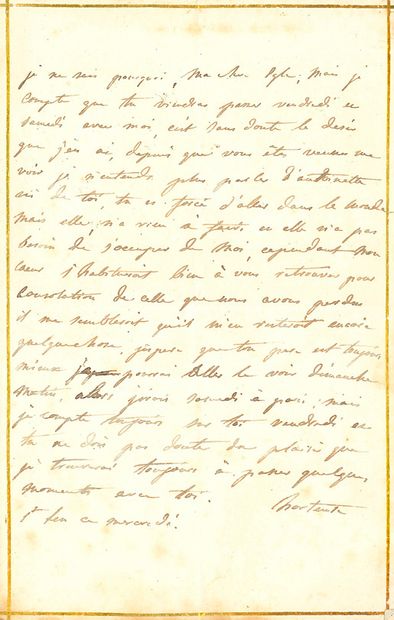 je ne sais pourquoi, ma chere Egle, mais je
compte que tu viendras passer vendredi et
samedi avec moi, c'est sans doute le desir
que j'en ai, depuis que vous êtes venues me
voir je n'entends plus parler d'
ni de toi, tu es forcé d'aller dans le monde
mais elle, n'a rien à faire et elle n'a pas
besoin de s'occuper de moi, cependant mon
cœur s'habituerait bien à vous retrouver pour
consolation de celle que nous avons perdue
il me semblerait qu'il m'en resterait encore
quelque chose, j'espere que ton pere est toujours
mieux pourrai aller le voir dimanche
matin, j'irois samedi à paris mais
je compte toujours sur toi vendredi et
tu ne dois pas douter du plaisir que
je trouverai toujours à passer quelques
moments avec toi.
hortense
St leu ce mercredi.